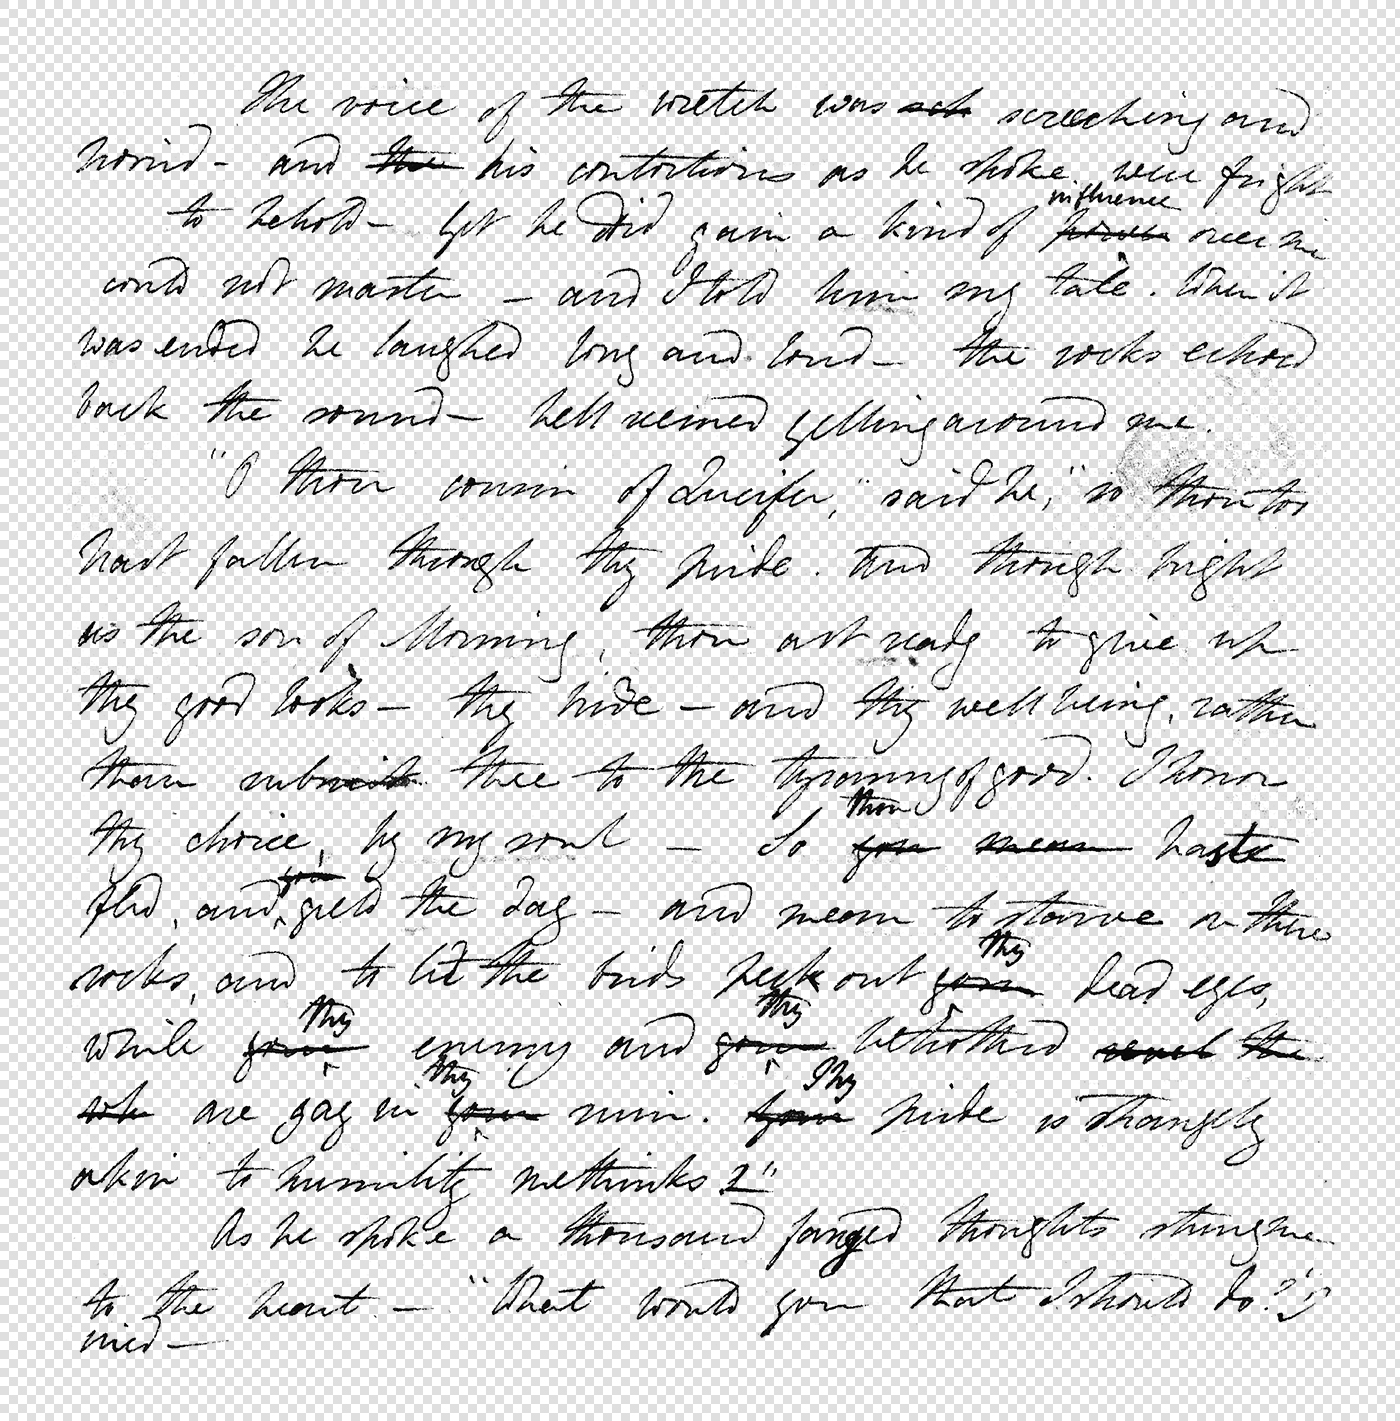 The voice of the wretch was sch screeching and
horrid — and the his contortions as he spoke were fright
influence
to behold — Yet he did gain a kind of power over me
could not master — and I told him my tale. When it
was ended he laughed long and loud — the rocks echoed
back the sound — hell seemed yelling around me.
"O thou cousin of Lucifer," said he, "so thou too
hast fallen through thy pride. and though bright
as the son of Morning, thou art ready to give up
thy good looks — thy bride — and thy well being, rather
than submit thee to the tyranny of good. I honor
thou
thy choice, by my soul — So you mean haste
you
fled, and yield the day — and mean to starve on these
thy
rocks, and to let the birds peck out your dead eyes,
thy thy
while your enemy and your betrothed revel the
thy Thy
who are gay in your ruin. Your pride is strangely
akin to humility methinks?"
As he spoke a thousand fanged thoughts stung me
to the heart — "What would you that I should do?" I
cried —